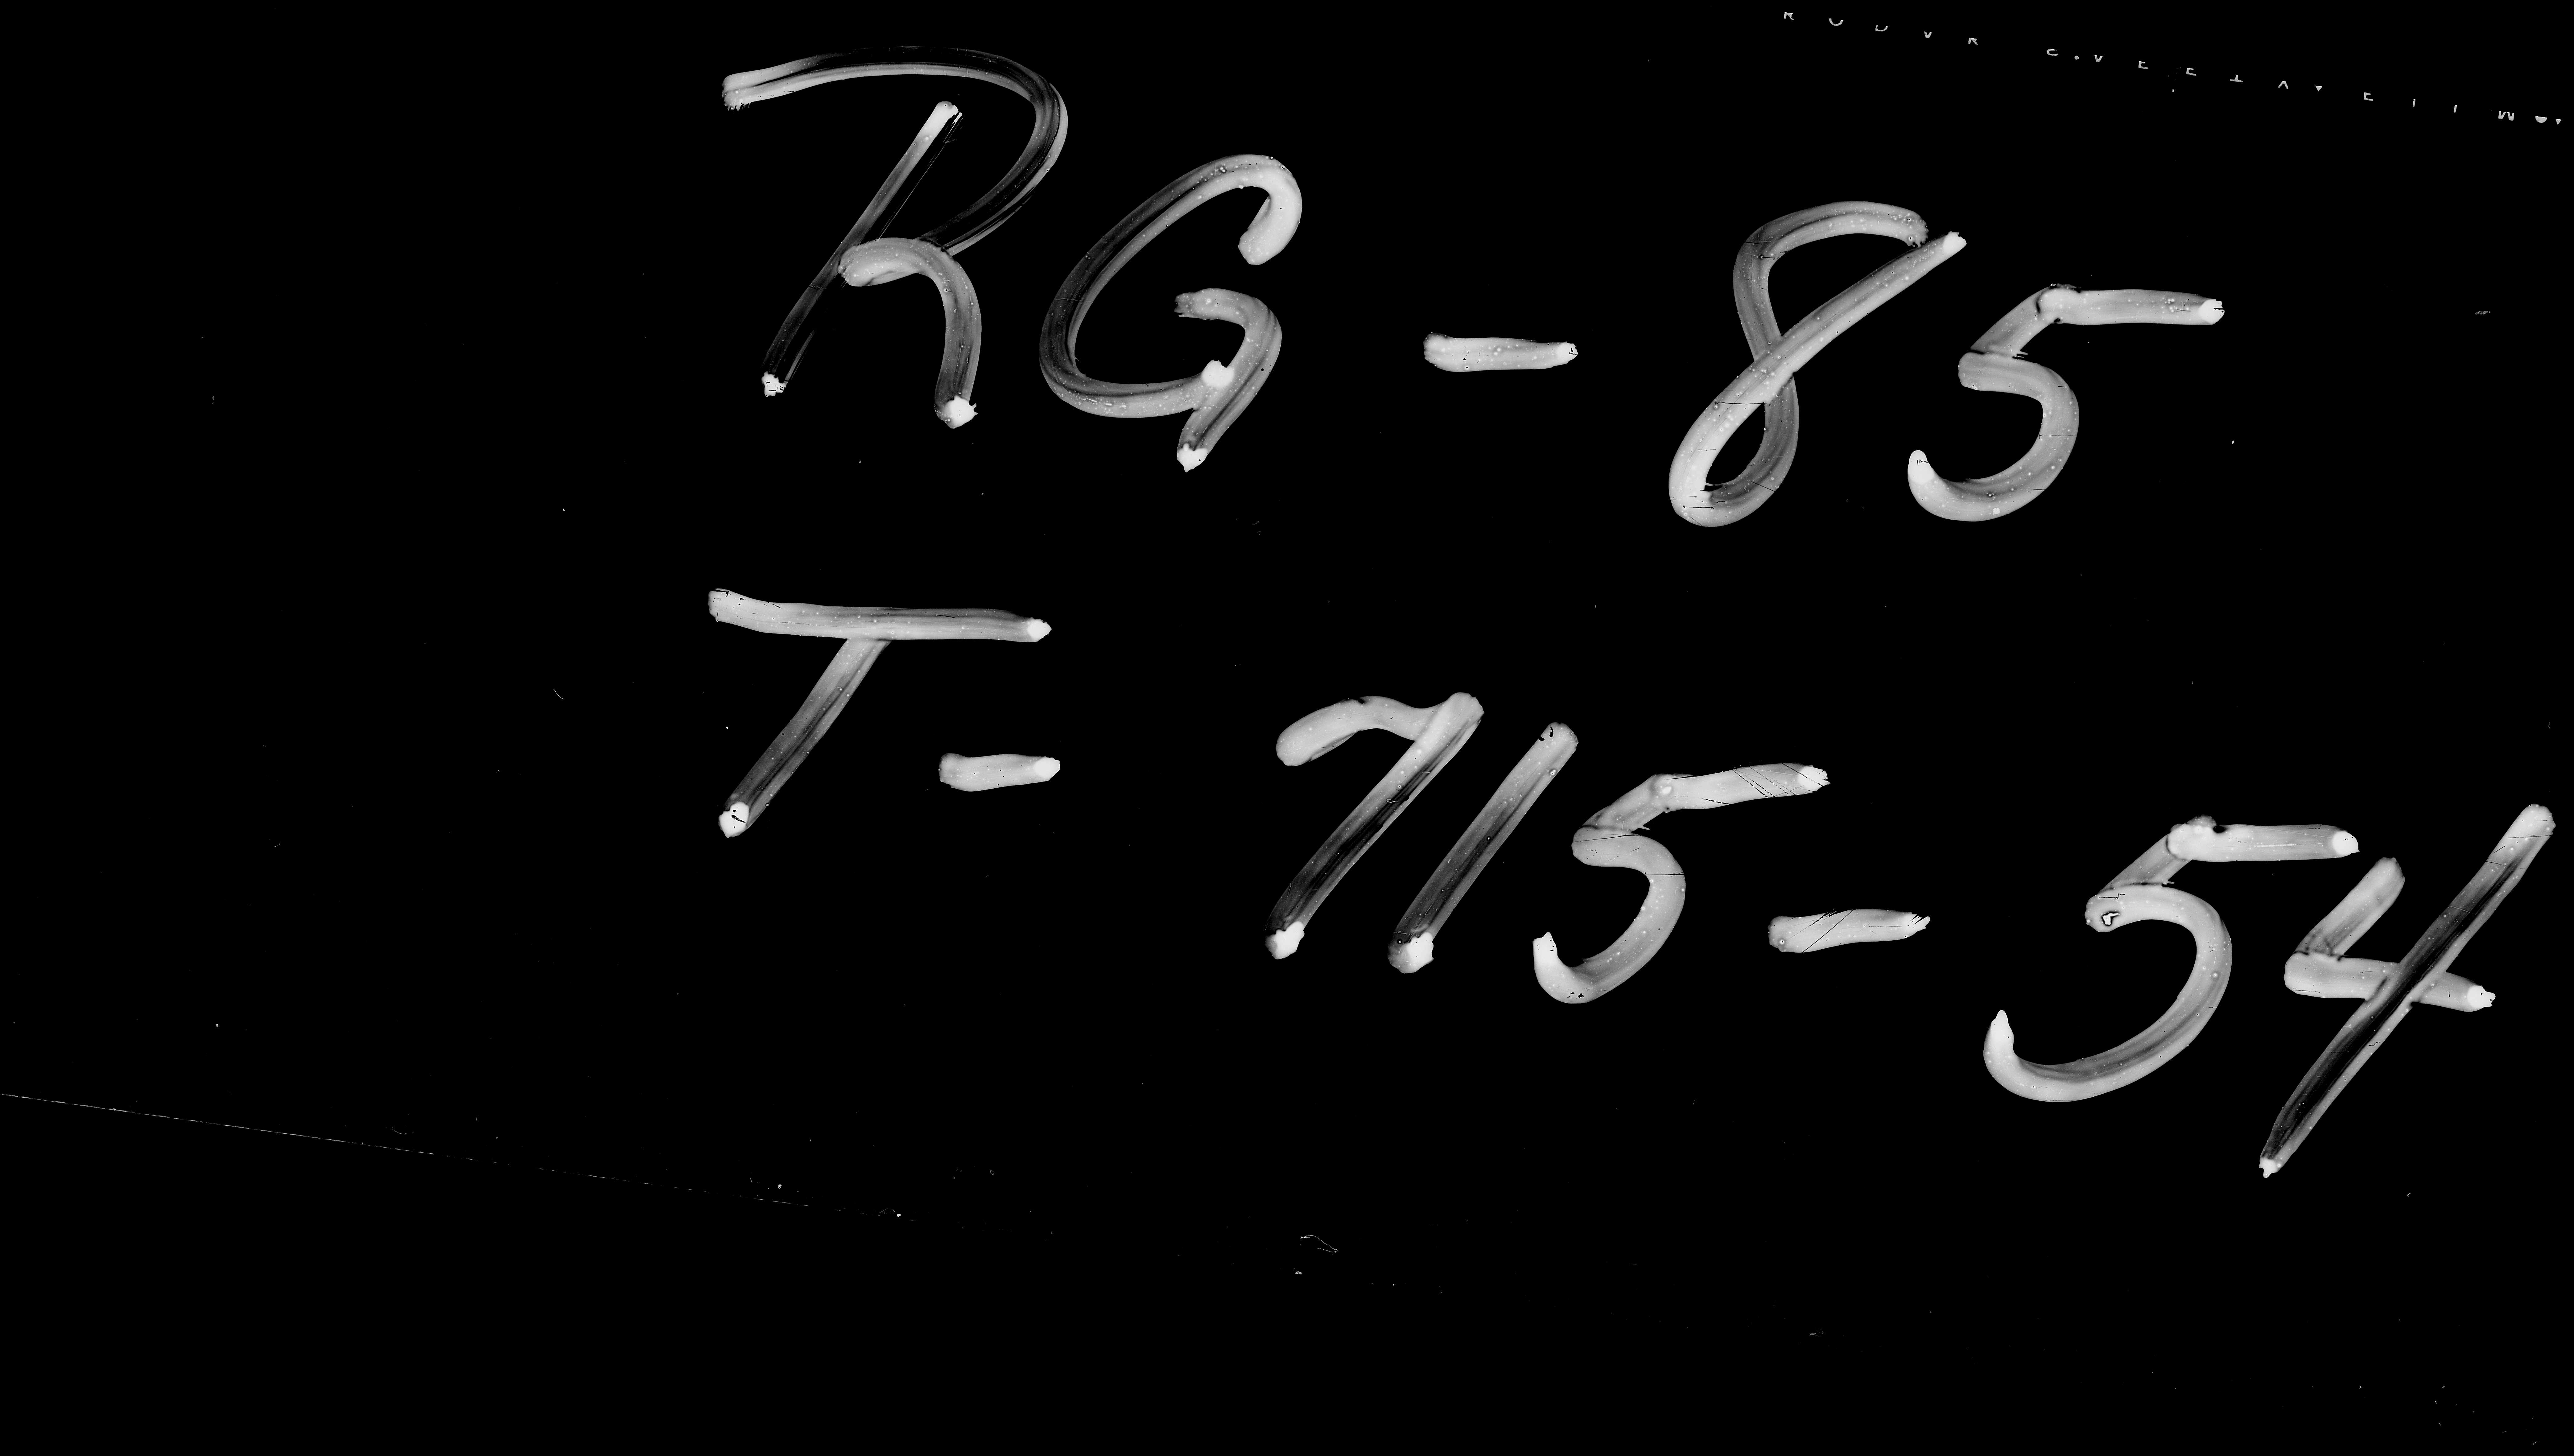 RG-85
T-715-54